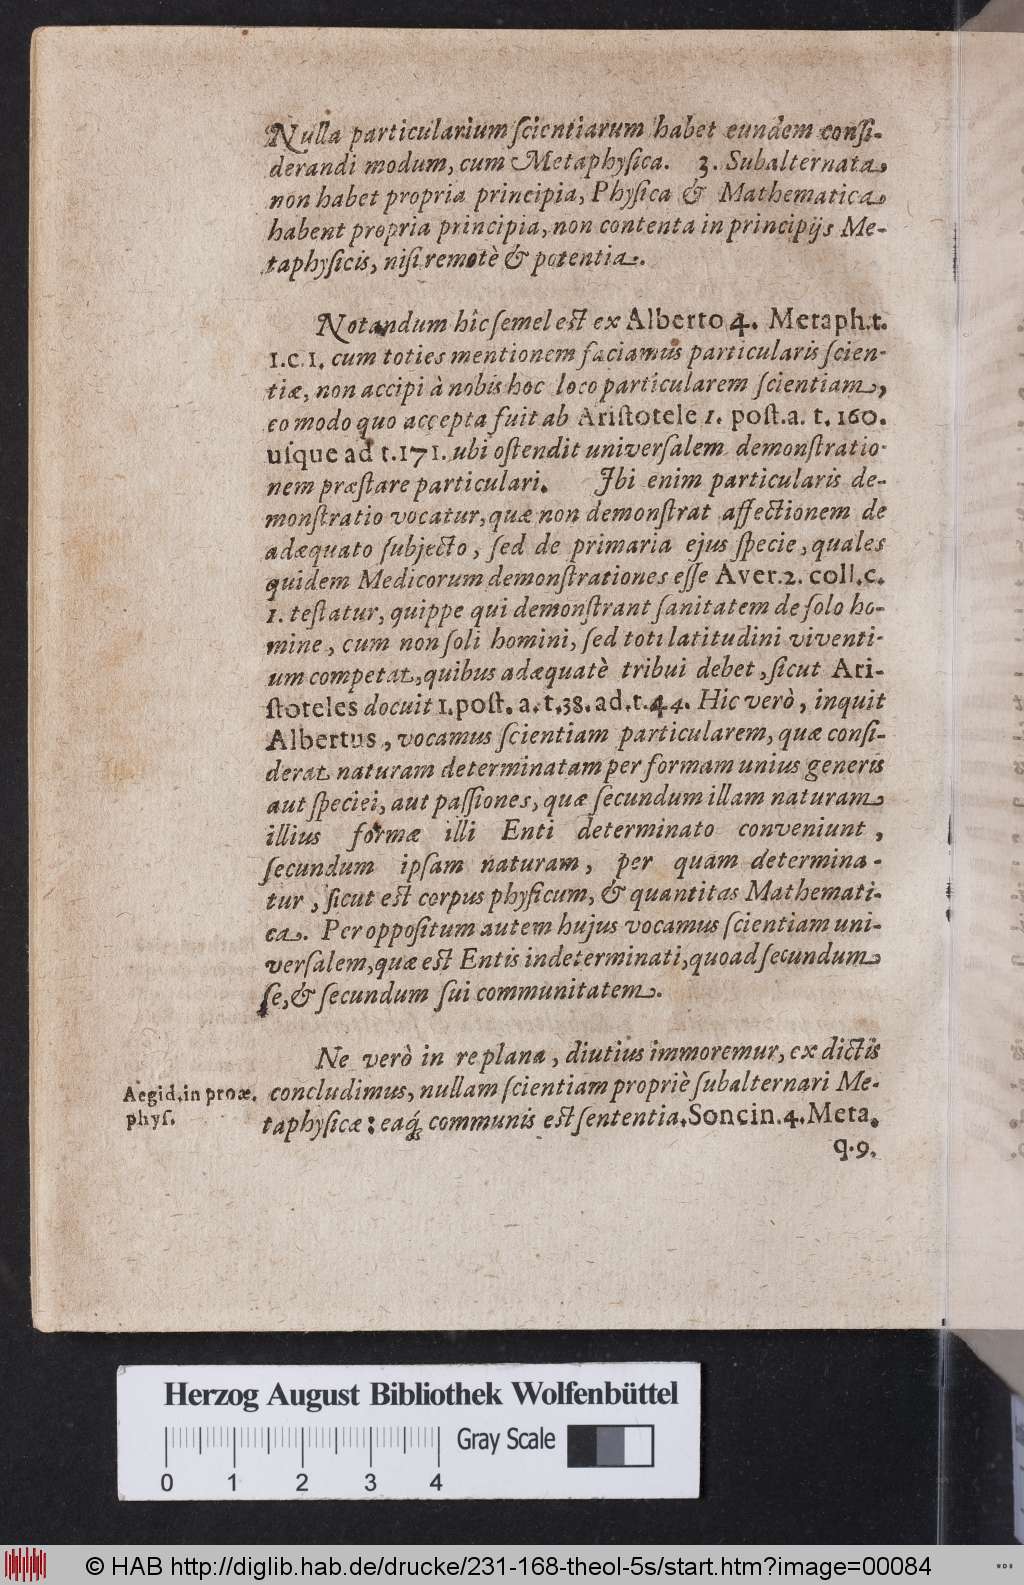 Nulla particularium ſcientiarum habet eundem conſi-
derandi modum, cum Metaphyſica. 3. Subalternata
non habet propria principia, Phyſica & Mathematica
habent propria principia, non contenta in principijs Me-
taphyſicis, niſi remotè & potentia.
Notandum hîc ſemel eſt ex Alberto 4. Metaph.t.
1.c.1. cum toties mentionem faciamus particularis ſcien-
tiæ, non accipi à nobis hoc loco particularem ſcientiam,
eo modo quo accepta fuit ab Ariſtotele 1. poſt.a. t. 160.
uſque ad t.171. ubi oſtendit univerſalem demonſtratio-
nem præſtare particulari. Ibi enim particularis de-
monſtratio vocatur, quæ non demonſtrat affectionem de
adæquato ſubjecto, ſed de primaria ejus ſpecie, quales
quidem Medicorum demonſtrationes eſſe Aver.2. coll.c.
1. teſtatur, quippe qui demonſtrant ſanitatem de ſolo ho-
mine, cum non ſoli homini, ſed toti latitudini viventi-
um competat, quibus adæquatè tribui debet, ſicut Ari-
ſtoteles docuit 1.poſt. a.t.38. ad.t.44. Hic verò, inquit
Albertus, vocamus ſcientiam particularem, quæ conſi-
derat naturam determinatam per formam unius generis
aut ſpeciei, aut paſſiones, quæ ſecundum illam naturam
illius formæ illi Enti determinato conveniunt,
ſecundum ipſam naturam, per quam determina-
tur, ſicut eſt corpus phyſicum, & quantitas Mathemati-
ca. Per oppoſitum autem hujus vocamus ſcientiam uni-
verſalem, quæ eſt Entis indeterminati, quoad ſecundum
ſe, & ſecundum ſui communitatem.
Ne verò in re plana, diutius immoremur, ex dictis
concludimus, nullam ſcientiam propriè ſubalternari Me-
taphyſicæ: eaq́; communis eſt ſententia. Soncin.4.Meta.
q.9.
Aegid.in proœ.
phyſ.
Herzog August Bibliothek Wolfenbüttel
Gray Scale
0 1 2 3 4
© HAB http://diglib.hab.de/drucke/231-168-theol-5s/start.htm?image=00084